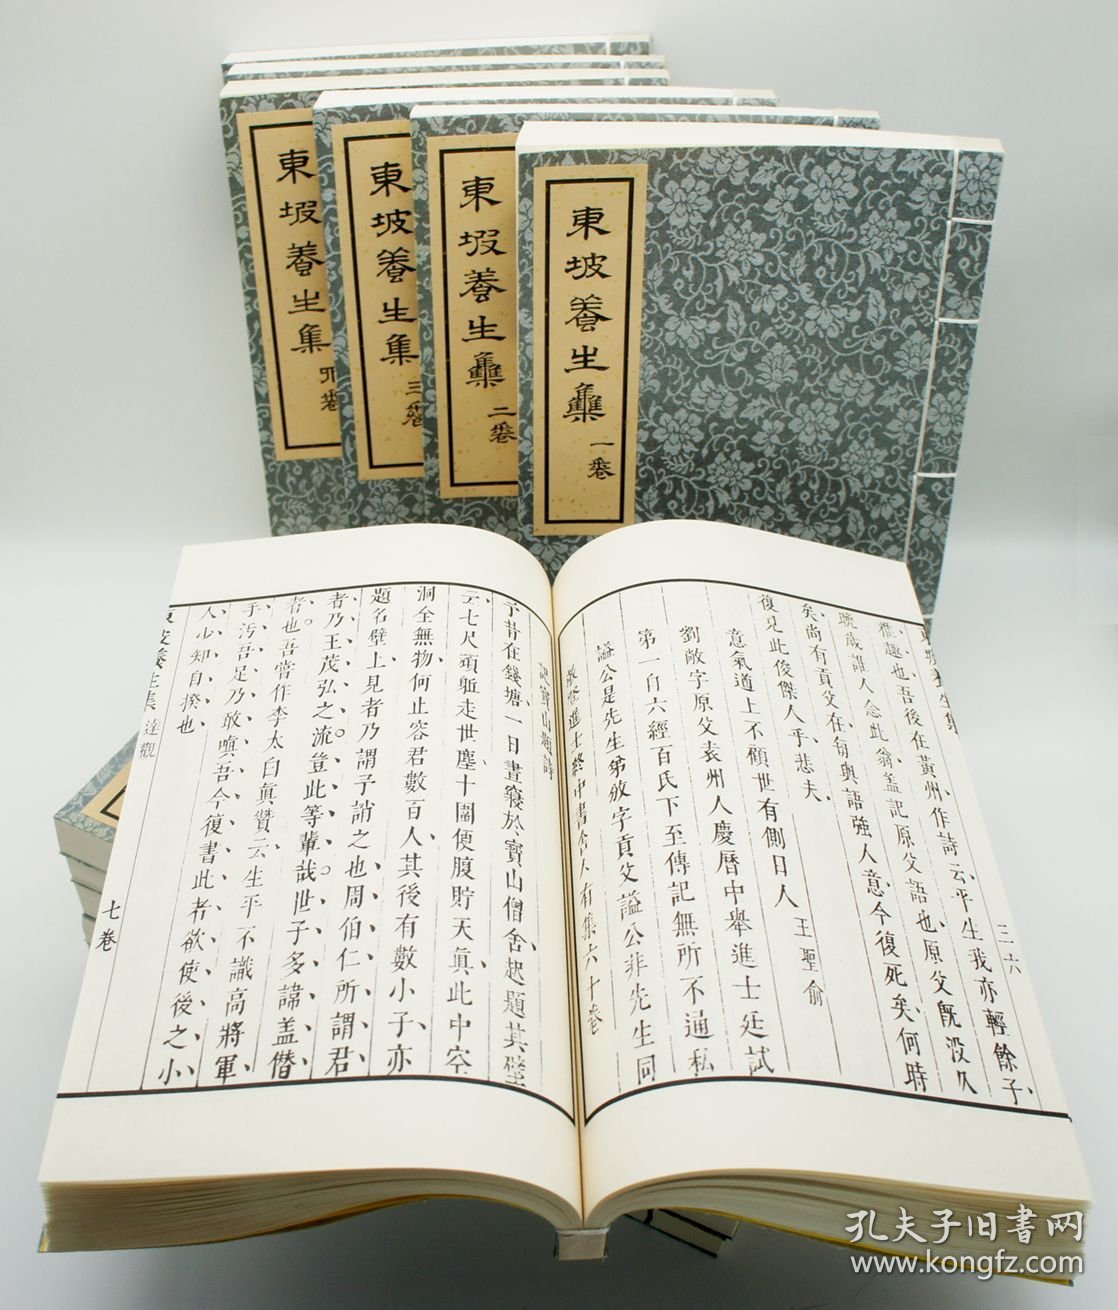 東坡養生集
一卷
東坡養生集
二卷
東坡養生集
三卷
東坡養生集
雅趣也吾後在黃州作詩云平生我亦輕餘子
晚歲誰人念此翁蓋記原父語也原父既没久
矣尚有貢父在每與語強人意今復死矣何時
復見此俊傑人乎悲夫
意氣道上不顧世有側目人 王聖俞
劉敞字原父袁州人慶曆中舉進士廷試
第一自六經百氏下至傳記無所不通私
謚公是先生弟攽字貢父謚公非先生同
敞登進士終中書舍人有集六十卷
三六
記寶山題詩
予昔在錢塘一日晝寢於寶山僧舍起題其壁
云七尺頑軀走世塵十圍便腹貯天真此中空
洞全無物何止容君數百人其後有數小子亦
題名壁上見者乃謂予誚之也周伯仁所謂君
者乃王茂弘之流豈此等輩哉世子多諱蓋僭
者也吾嘗作李太白真贊云生平不識高將軍
手汚吾足乃敢嗔吾今復書此者欲使後之小
人少知自揆也
東坡養生集 達觀
七卷
孔夫子旧書网
www.kongfz.com